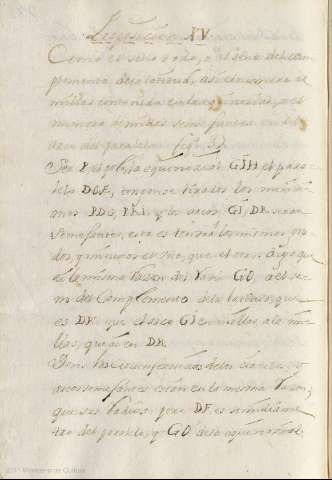 Proposicion XV.
Como el seno todo, al seno del com
plemento de la latitud, asi el numero de
millas contenida en la equinocial, a el
numero de millas semejantes en el
arco del paralelo. fig. 32.
Sea P. el polo la equinocial GIH el para
lelo DEF, tirados los meridia
nos PDG, PRI, y los arcos GI, DR seran
semejantes, esto es tendrá los mismos gra
dos, y minutos el uno, que el otro. digo que
es la misma razon del radio GO, a el se
no del complemento de la latitud, que
es DF que el arco GI en millas, a las mi
llas, que ai en DR
Dem. las circunferencias de los circulos y
arcos semejantes estan en la misma razon,
que sus radios: pero DF es semidiame
tro del paralelo, y GO de la equinocial,
2011 Ministerio de Cultura